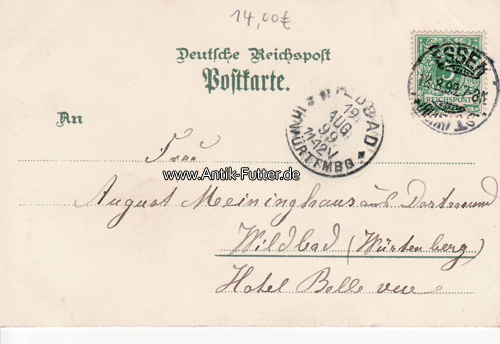 14,00€
Deutsche Reichspost
Postkarte.
An
Frau
August Meininghaus aus Dortmund
Wildbad (Würtenberg)
Hotel Belle vue
ESSEN
REICHSPOST
WILDBAD
19
AUG
99
11-12V
WÜRTEMBG
www.Antik-Futter.de